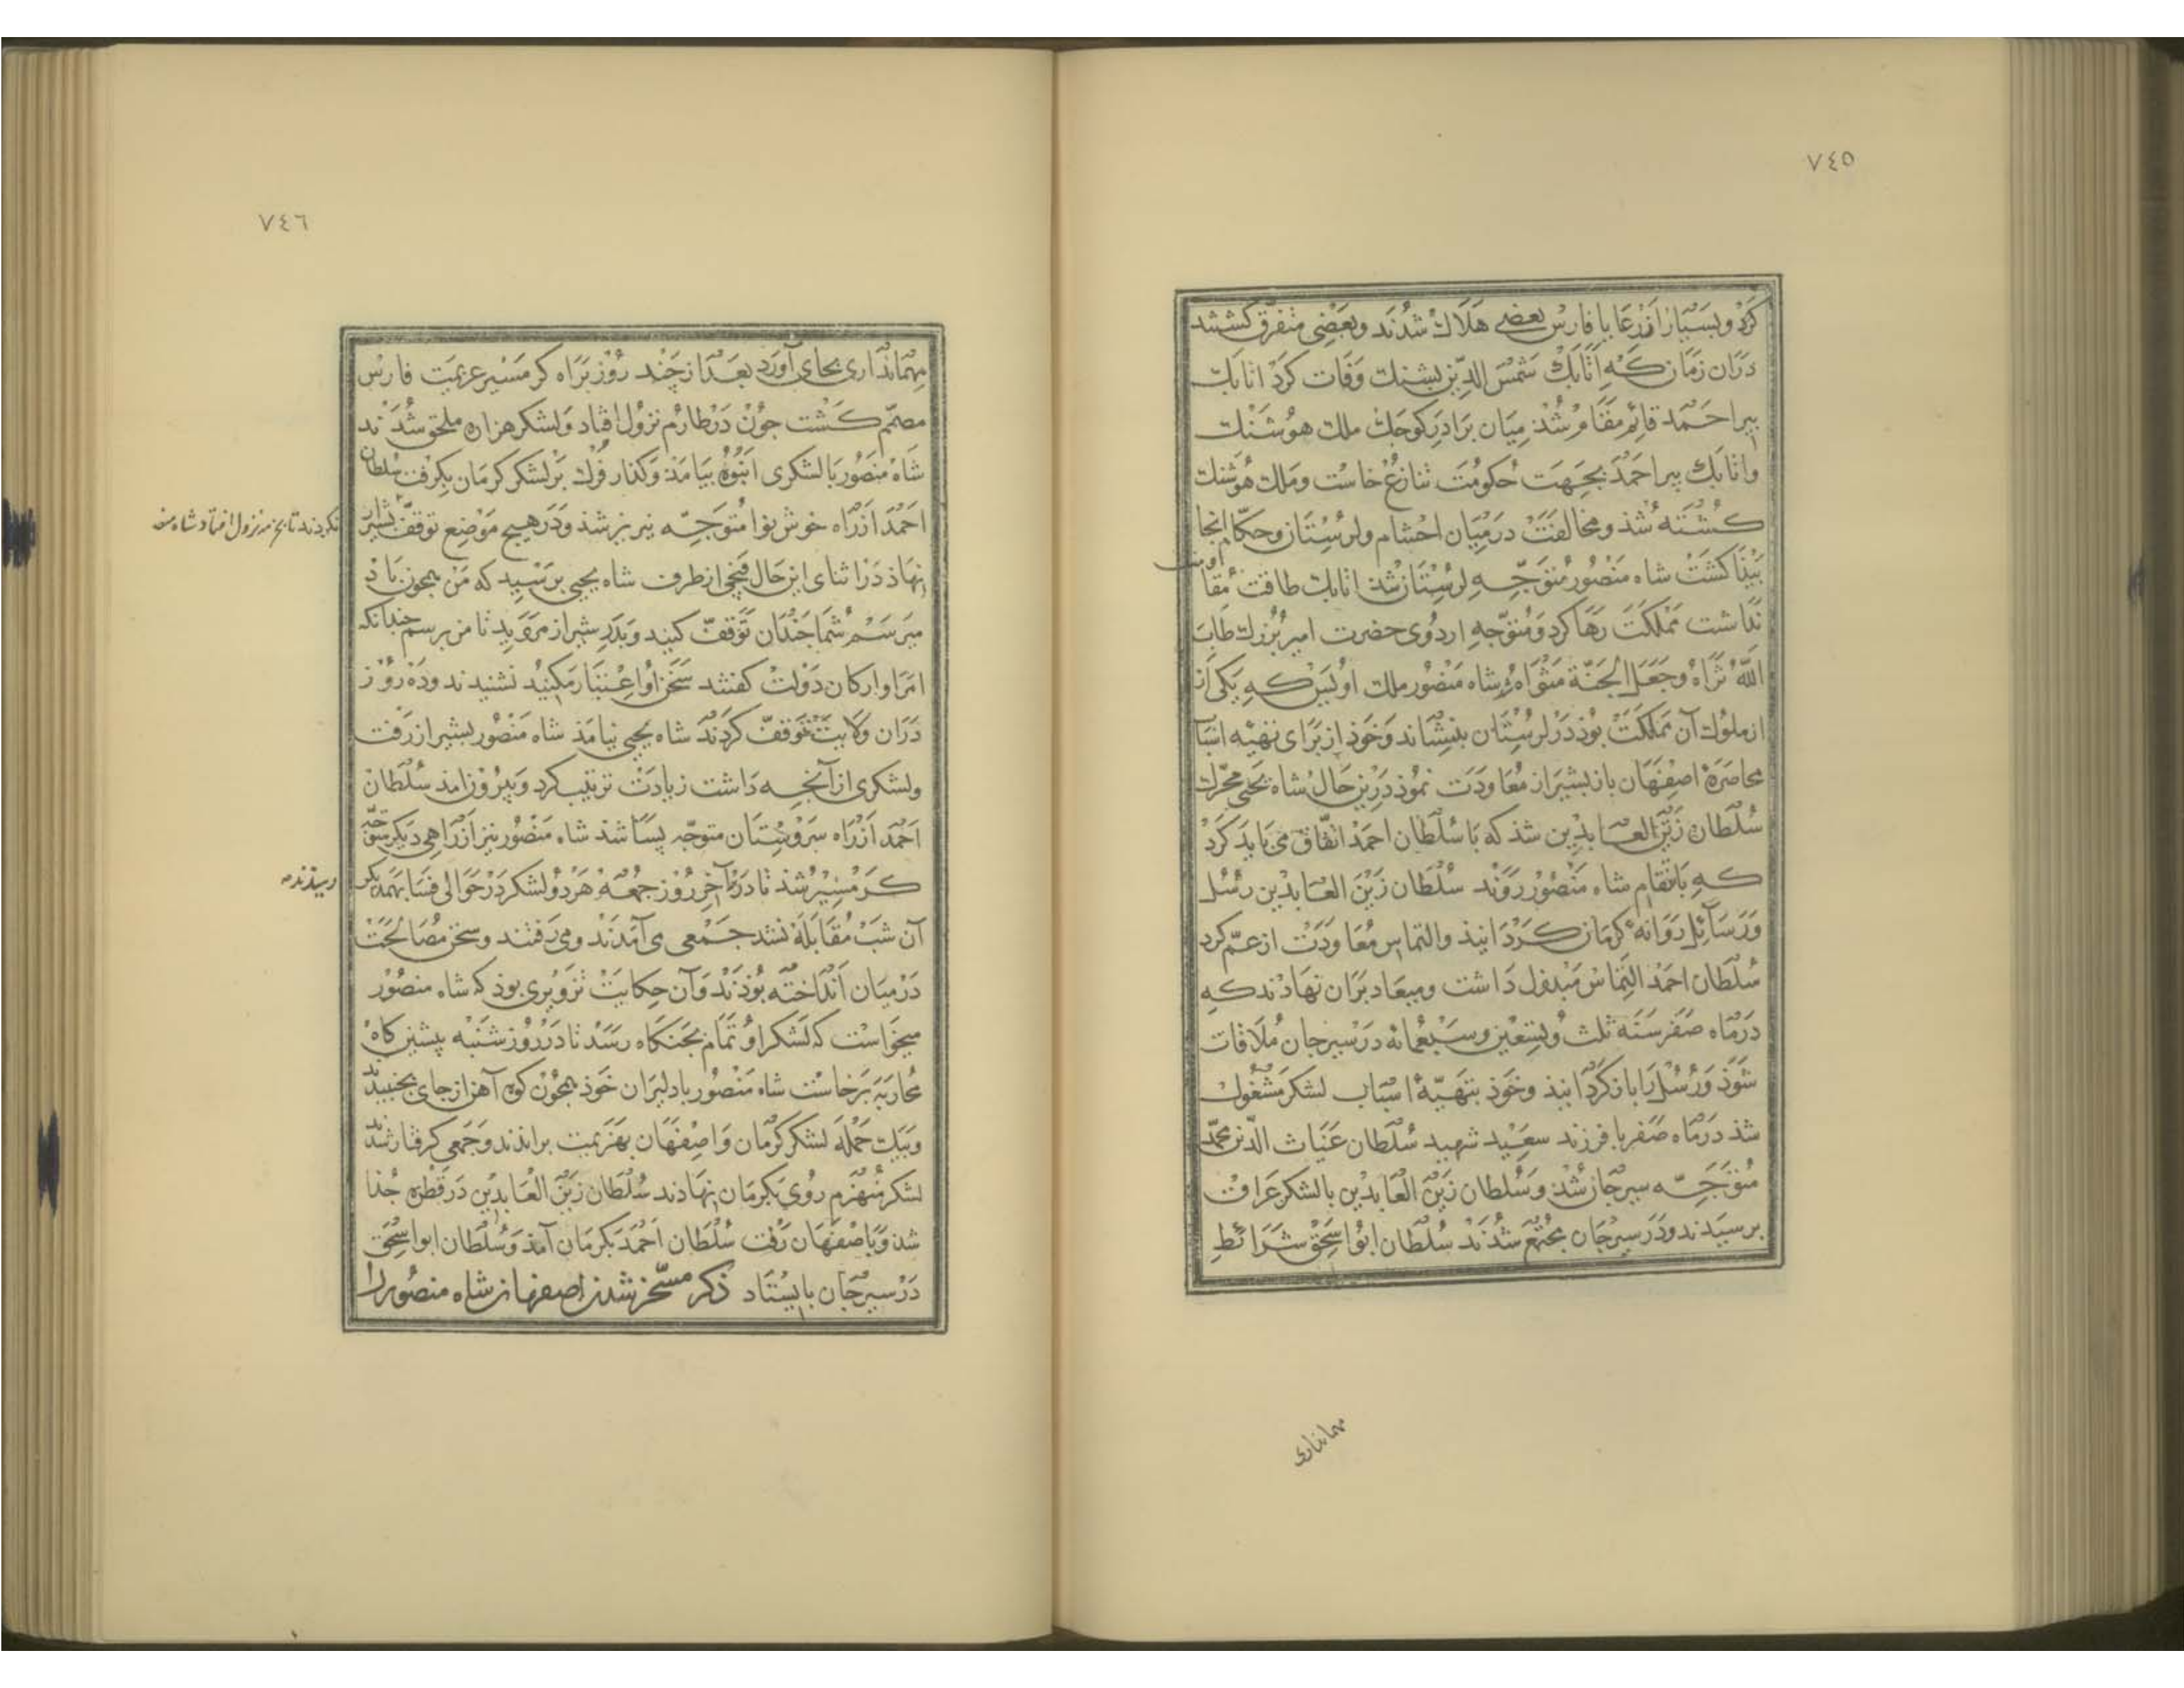 ٧٤٥
كرد و بسيار از رعايا فارس بعضى هلاك شدند و بعضى متفرق كشتند
دران زمان كه اتابك شمس الدين پشنك وفات كرد اتابك
پير احمد قائم مقام شد ميان برادر كوچك ملك هوشنك
و اتابك پير احمد بجهت حكومت تنازع خاست و ملك هوشنك
كشته شد و مخالفت در ميان احشام و لرستان و حكام انجا
پيدا كشت شاه منصور متوجه لرستان شد اتابك طاقت مقاومت
نداشت مملكت رها كرد و متوجه اردوى حضرت امير بزرك طاب
الله ثراه و جعل الجنة مثواه شاه منصور ملك اويس كه يكى از
از ملوك آن مملكت بوذ در لرستان بنشاند و خوذ از براى تهيه اسباب
محاصره اصفهان باز بشيراز معاودت نموذ درين حال شاه يحيى محرك
سلطان زين العابدين شد كه با سلطان احمد اتفاق مى بايد كرد
كه بانتقام شاه منصور روند سلطان زين العابدين رسل
و رسائل روانه كرمان كردانيذ و التماس معاودت از عم كرد
سلطان احمد التماس مبذول داشت و ميعاد بران نهادند كه
در ماه صفر سنه ثلث و تسعين و سبعمائه در سيرجان ملاقات
شوذ و رسل را باز كردانيذ و خوذ بتهيه اسباب لشكر مشغول
شذ در ماه صفر با فرزند سعيد شهيد سلطان غياث الدين محمد
متوجه سيرجان شد و سلطان زين العابدين با لشكر عراق
برسيدند و در سيرجان مجتمع شدند سلطان ابو اسحق شرائط
مهماندارى
٧٤٦
مهماندارى بجاى آورد بعد از چند روز براه كرمسير عزيمت فارس
مصمم كشت چون در طارم نزول افتاد و لشكر هزاره ملحق شدند
شاه منصور با لشكرى انبوه بيامذ و كنار فرك بر لشكر كرمان بكرفت سلطان
احمد از راه خوش نوا متوجه نيريز شذ و در هيچ موضع توقف
نكردند تا بخ نزول افتاد شاه
نهاذ در اثناى اين حال قيحى از طرف شاه يحيى برسيد كه من همچون باد
ميرسم شما چندان توقف كنيد و بدر شيراز مرويد تا من برسم چندانكه
امرا و اركان دولت كفتند سخن او اعتبار مكنيد نشنيدند و ده روز
دران ولايت توقف كردند شاه يحيى نيامذ شاه منصور بشيراز رفت
و لشكرى از آنچه داشت زيادت ترتيب كرد و بيرون امذ سلطان
احمد از راه سروستان متوجه پسا شذ شاه منصور نيز از راهى ديكر متوجه
كرمسير شذ تا در آخر روز جمعه هر دو لشكر در حوالى فسا بهمديكر
رسيذند
آن شب مقابله نشد جمعى مى آمدند و مى رفتند و سخن مصالحت
در ميان انداخته بوذند و آن حكايت تزويرى بوذ كه شاه منصور
ميخواست كه لشكر او تمام بجنكاه رسد تا در روز شنبه پيشين كاه
محاربه برخاست شاه منصور با دليران خوذ همچون كوه آهن از جاى بجنبيد
و بيك حمله لشكر كرمان و اصفهان بهزيمت براندند و جمعى كرفتار شدند
لشكر منهزم روى بكرمان نهادند سلطان زين العابدين در قطره جذا
شد و باصفهان رفت سلطان احمد بكرمان آمد و سلطان ابو اسحق
در سيرجان بايستاد ذكر مسخر شدن اصفهان شاه منصور را